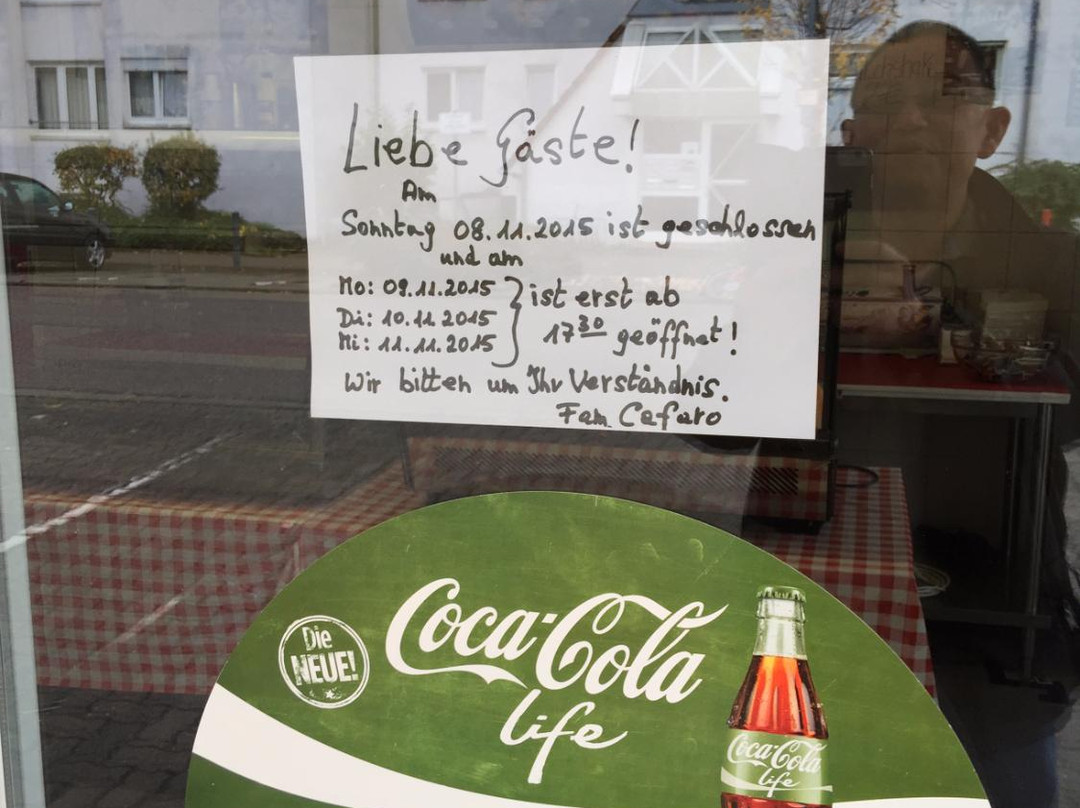 Liebe Gäste!
Am
Sonntag 08.11.2015 ist geschlossen
und am
Mo: 09.11.2015 } ist erst ab
Di: 10.11.2015
17 30 geöffnet!
Mi: 11.11.2015
Wir bitten um Ihr Verständnis.
Fam. Cafaro
Die
NEUE!
Coca-Cola
life
Coca-Cola
life